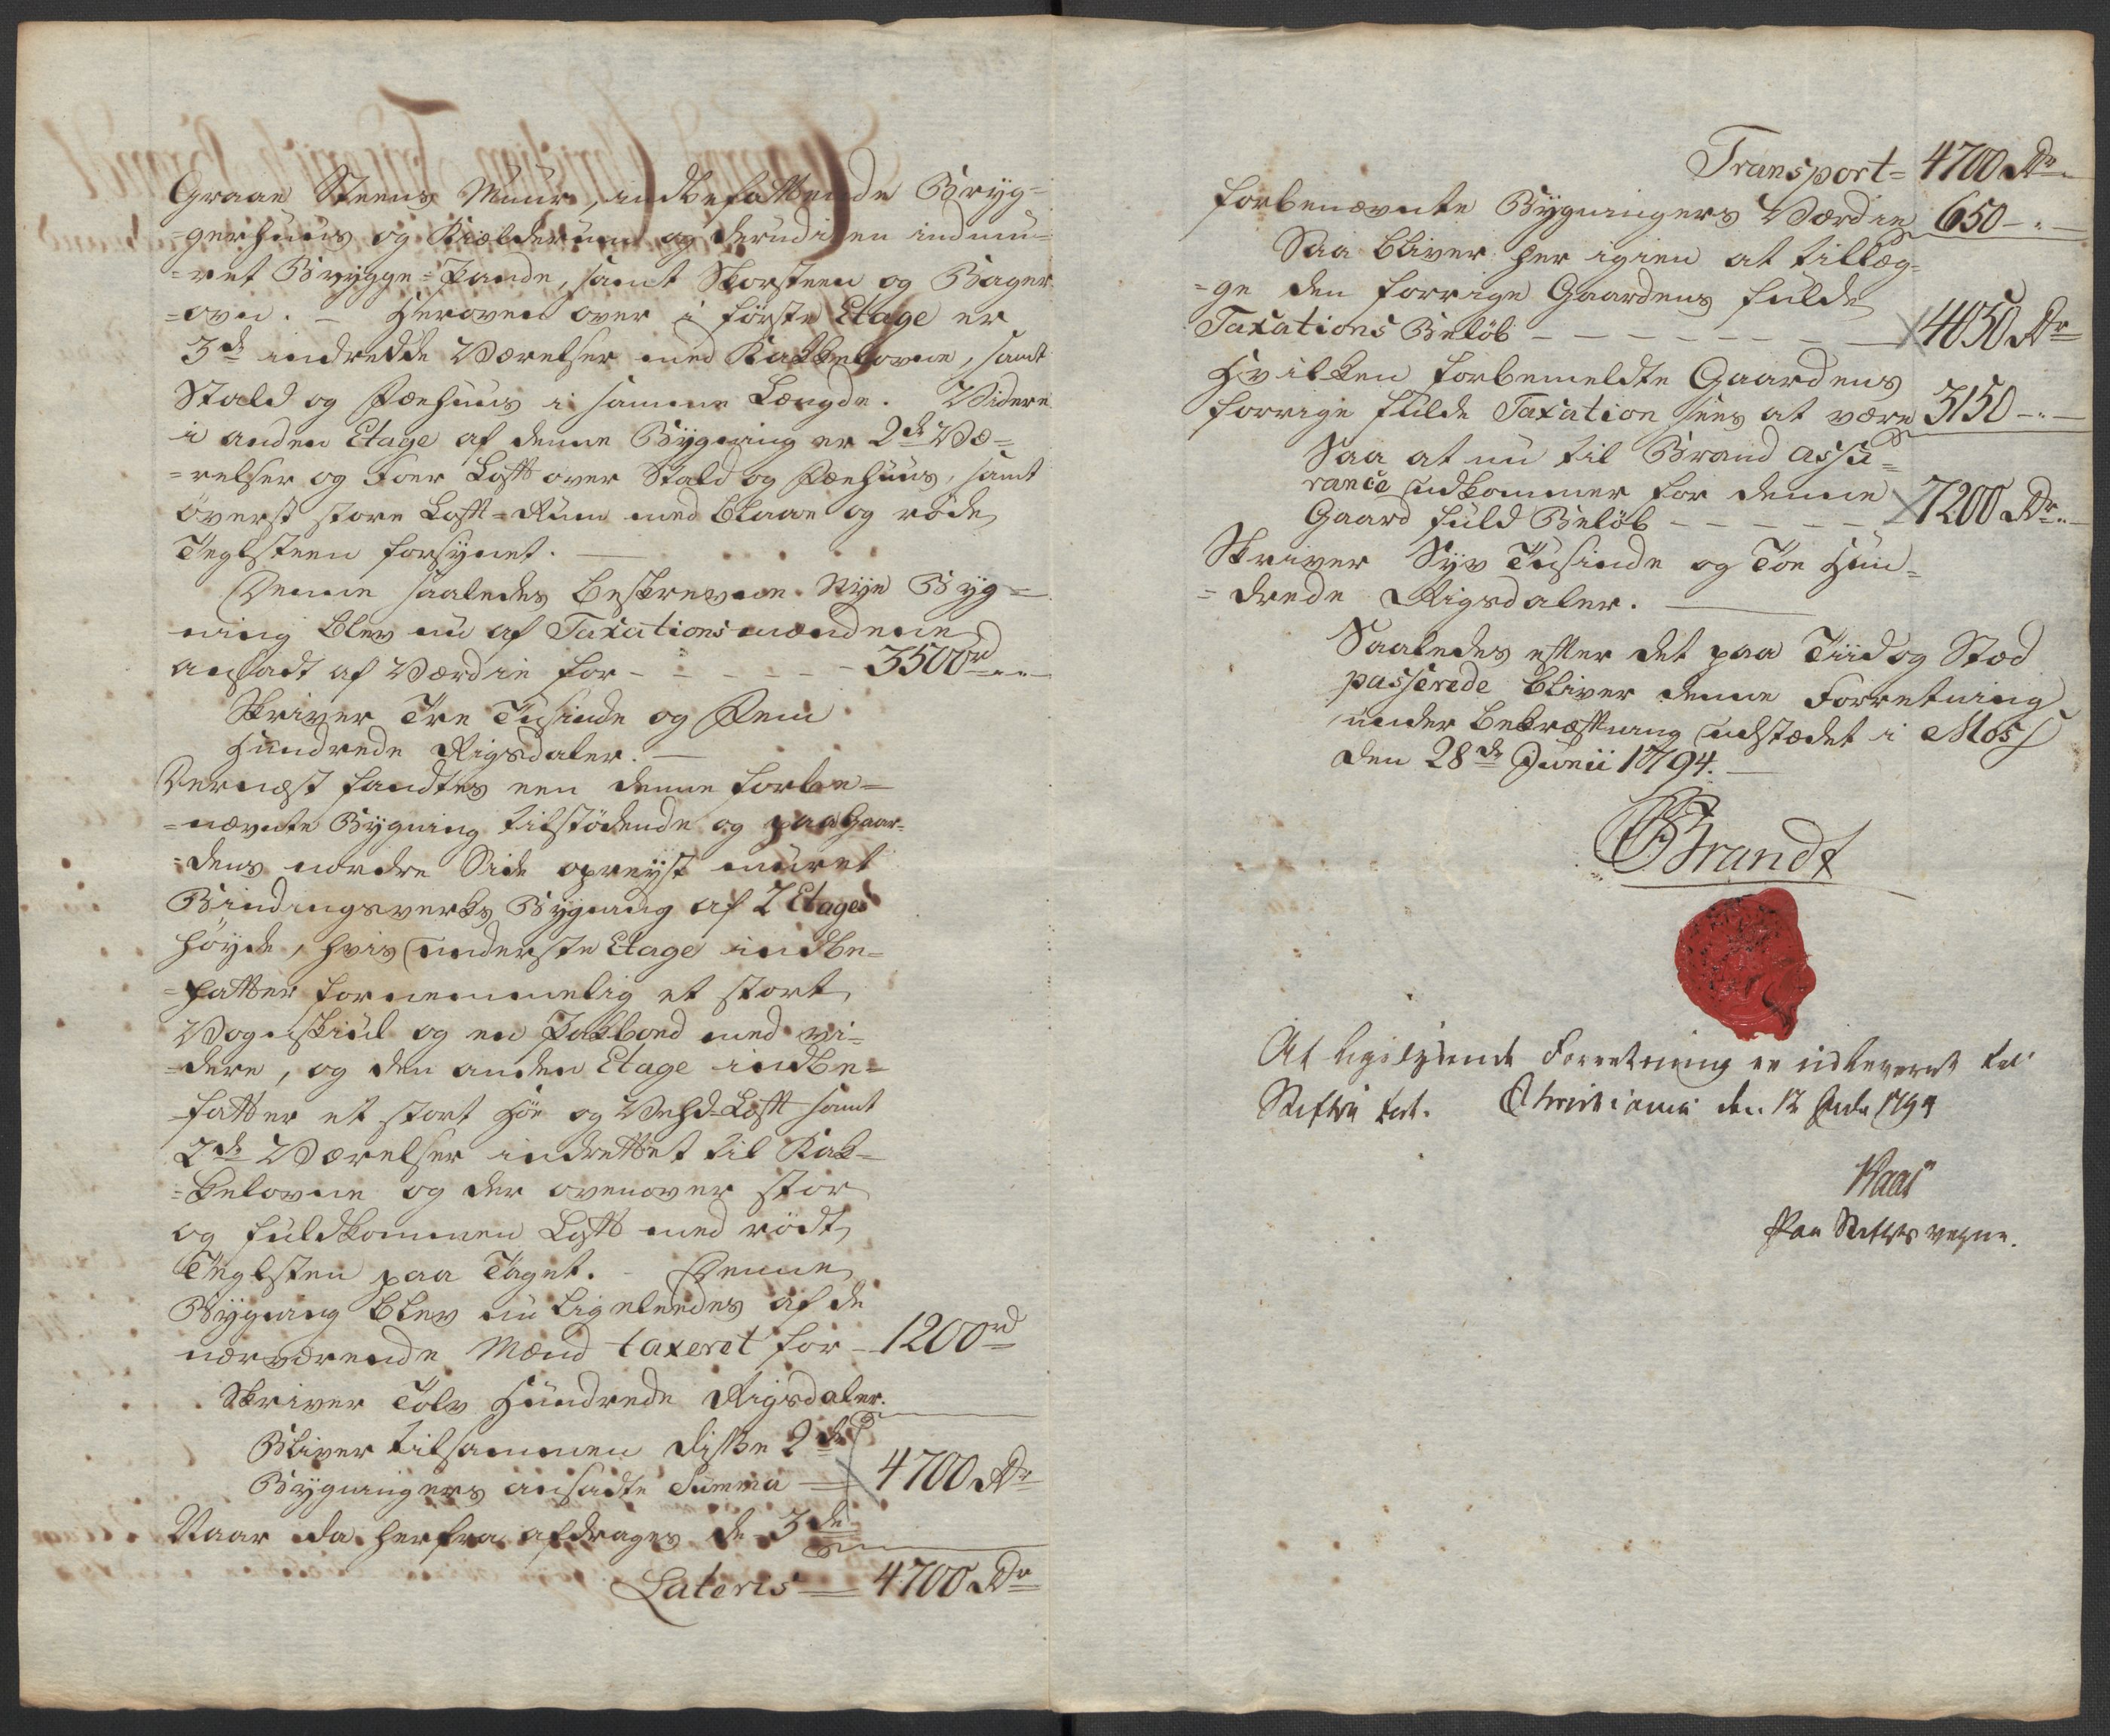 Graae Steens Muur, indbefattende Bryg-
=gerhuus og Kielderrum og derudi en indmu-
=ret Brygge-Pande, samt Skorsteen og Bager
=ovn. — Heroven over i første Etage er
3de indredde Værelser med Kakkelovne, samt
Stald og Fæehuus i samme Længde. Videre
i anden Etage af denne Bygning er 2de Væ-
=relser og Foer Loft over Stald og Fæehuus, samt
øverst store Loft-Rum med blaae og røde
Teglsteen forsynet. —
Denne saaledes beskrevne Nye Byg-
ning blev nu af Taxationsmændene
ansadt af Værdie for - - - - - 3500rd
Skriver Tre Tusinde og Fem
Hundrede Rigsdaler. —
Dernæst fandtes een denne forbe-
=nævnte Bygning tilstødende og paa Gaar-
=dens nordre Side opreyst muret
Bindingsverks Bygning af 2 Etages
Høyde, hvis underste Etage indbe-
=fatter fornemmelig et stort
Vognskiul og en Pakboed med vi-
=dere, og den anden Etage indbe-
fatter et stort Høe og Vehd-Loft samt
2de Værelser indrettet til Kak-
=kelovne og der ovenover stor
og fuldkommen Loft med rødt
Teglsten paa Taget. - Denne
Bygning blev nu ligeleedes af de
nærværende Mænd taxeret for - 1200rd
Skriver Tolv Hundrede Rigsdaler.
Bliver tilsammen diße 2de
Bygningers ansadte Summa — 4700 Rdr
Naar da herfra afdrages de 3de
Lateris — 4700 Rdr
Transport= 4700 Rdr
forbenævnte Bygningers Værdie 650 - . -
Saa bliver her igien at tillæg-
=ge den forrige Gaardens fulde
Taxations Beløb - - - - - - - - 4050 Rdr
Hvilken forbemeldte Gaardens
forrige fulde Taxation sees at være 3150 - . -
Saa at nu til Brand assu-
rance udkommer for denne
Gaard fuld Beløb - - - - - 7200 Rdr
Skriver Syv Tusinde og Toe Hun-
=drede Rigsdaler. —
Saaledes efter det paa Tiid og Stæd
passerede bliver denne Forretning
under Bekræftning udstædet i Moss
den 28de Junii 1794. —
Brandt
At ligelydende Forretning er indleveret til
Christiania den 12 Julii 1794
Kaas
Paa Stiftets vegne.